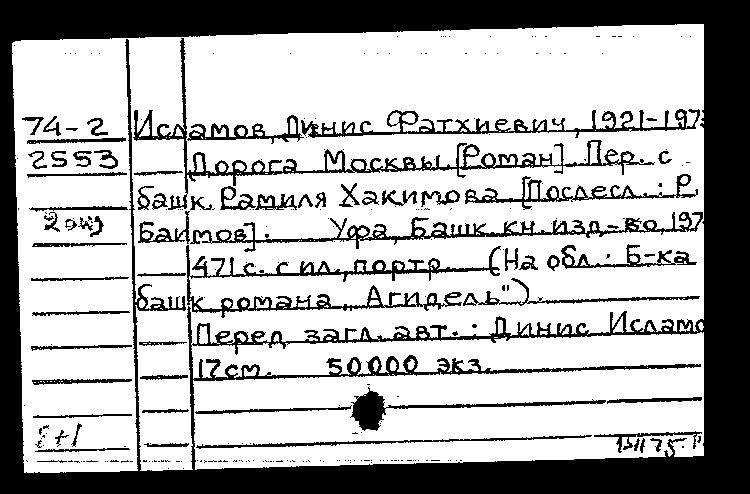 74-2 Исламов, Динис Фатхиевич, 1921-197
2553 Дорога Москвы [Роман]. Пер. с
башк. Рамиля Хакимова [Послесл.: Р.
2 экз Баимов]. Уфа, Башк. кн. изд-во, 197
471 с. с ил., портр. (На обл.: Б-ка
башк романа „Агидель").
Перед загл. авт.: Динис Исламо
17 см. 50000 экз.